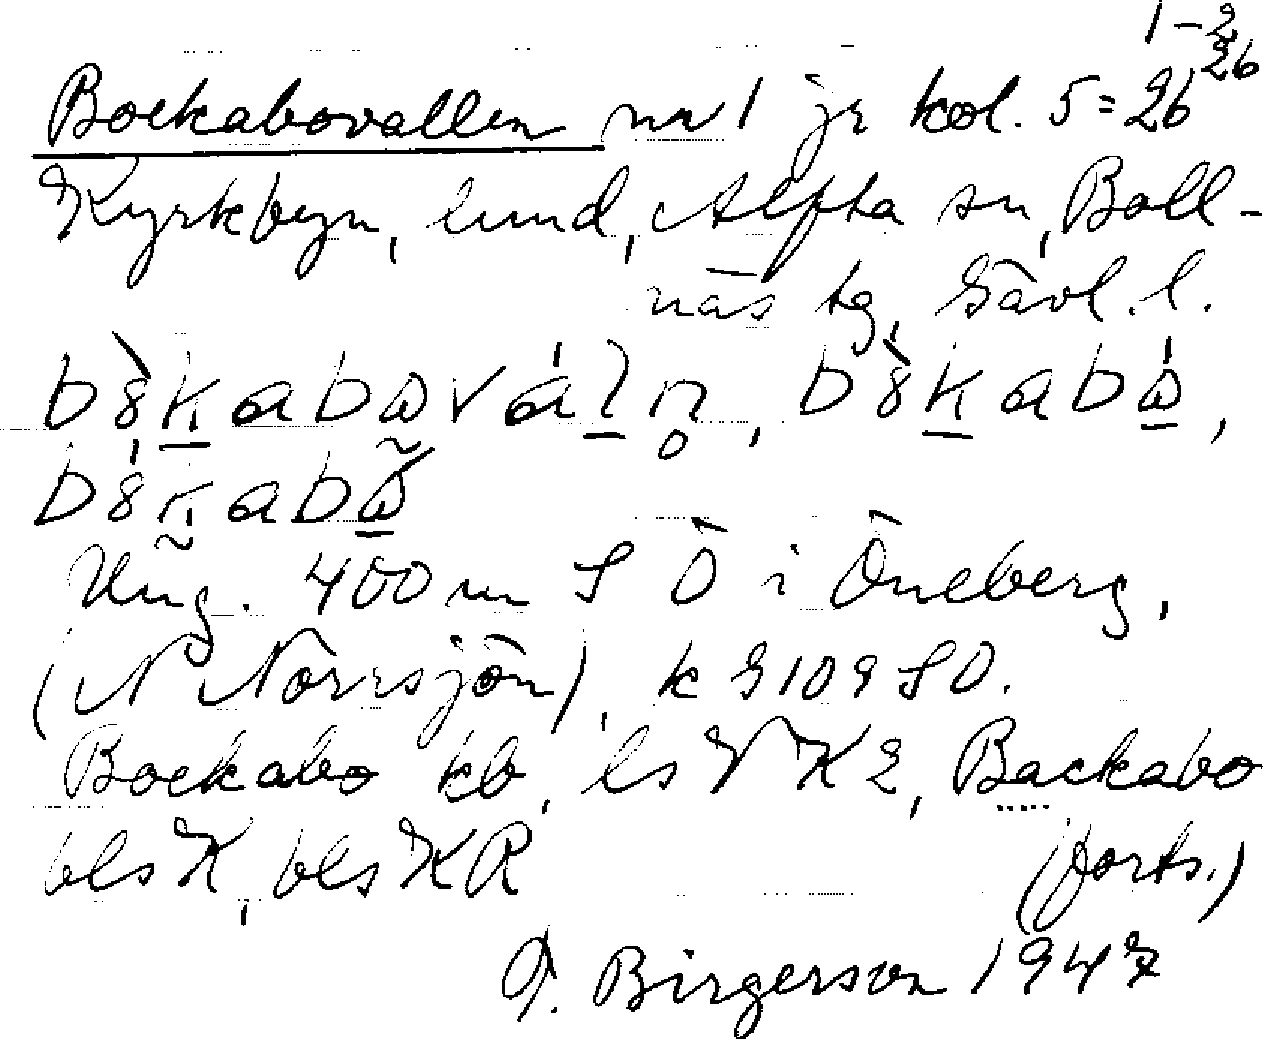 1-2
26
Bockabovallen nr 1 je kol. 5=26
Kyrkbyn, lund, Alfta sn, Boll-
näs tg, Gävl. l.
Ung. 400 m S Ö i Öneberg,
(N Norrsjön), k 9109 SO.
Bockabo kb, ls V K 2, Backabo
bls K, bls KR (forts.)
G. Birgerson 1947